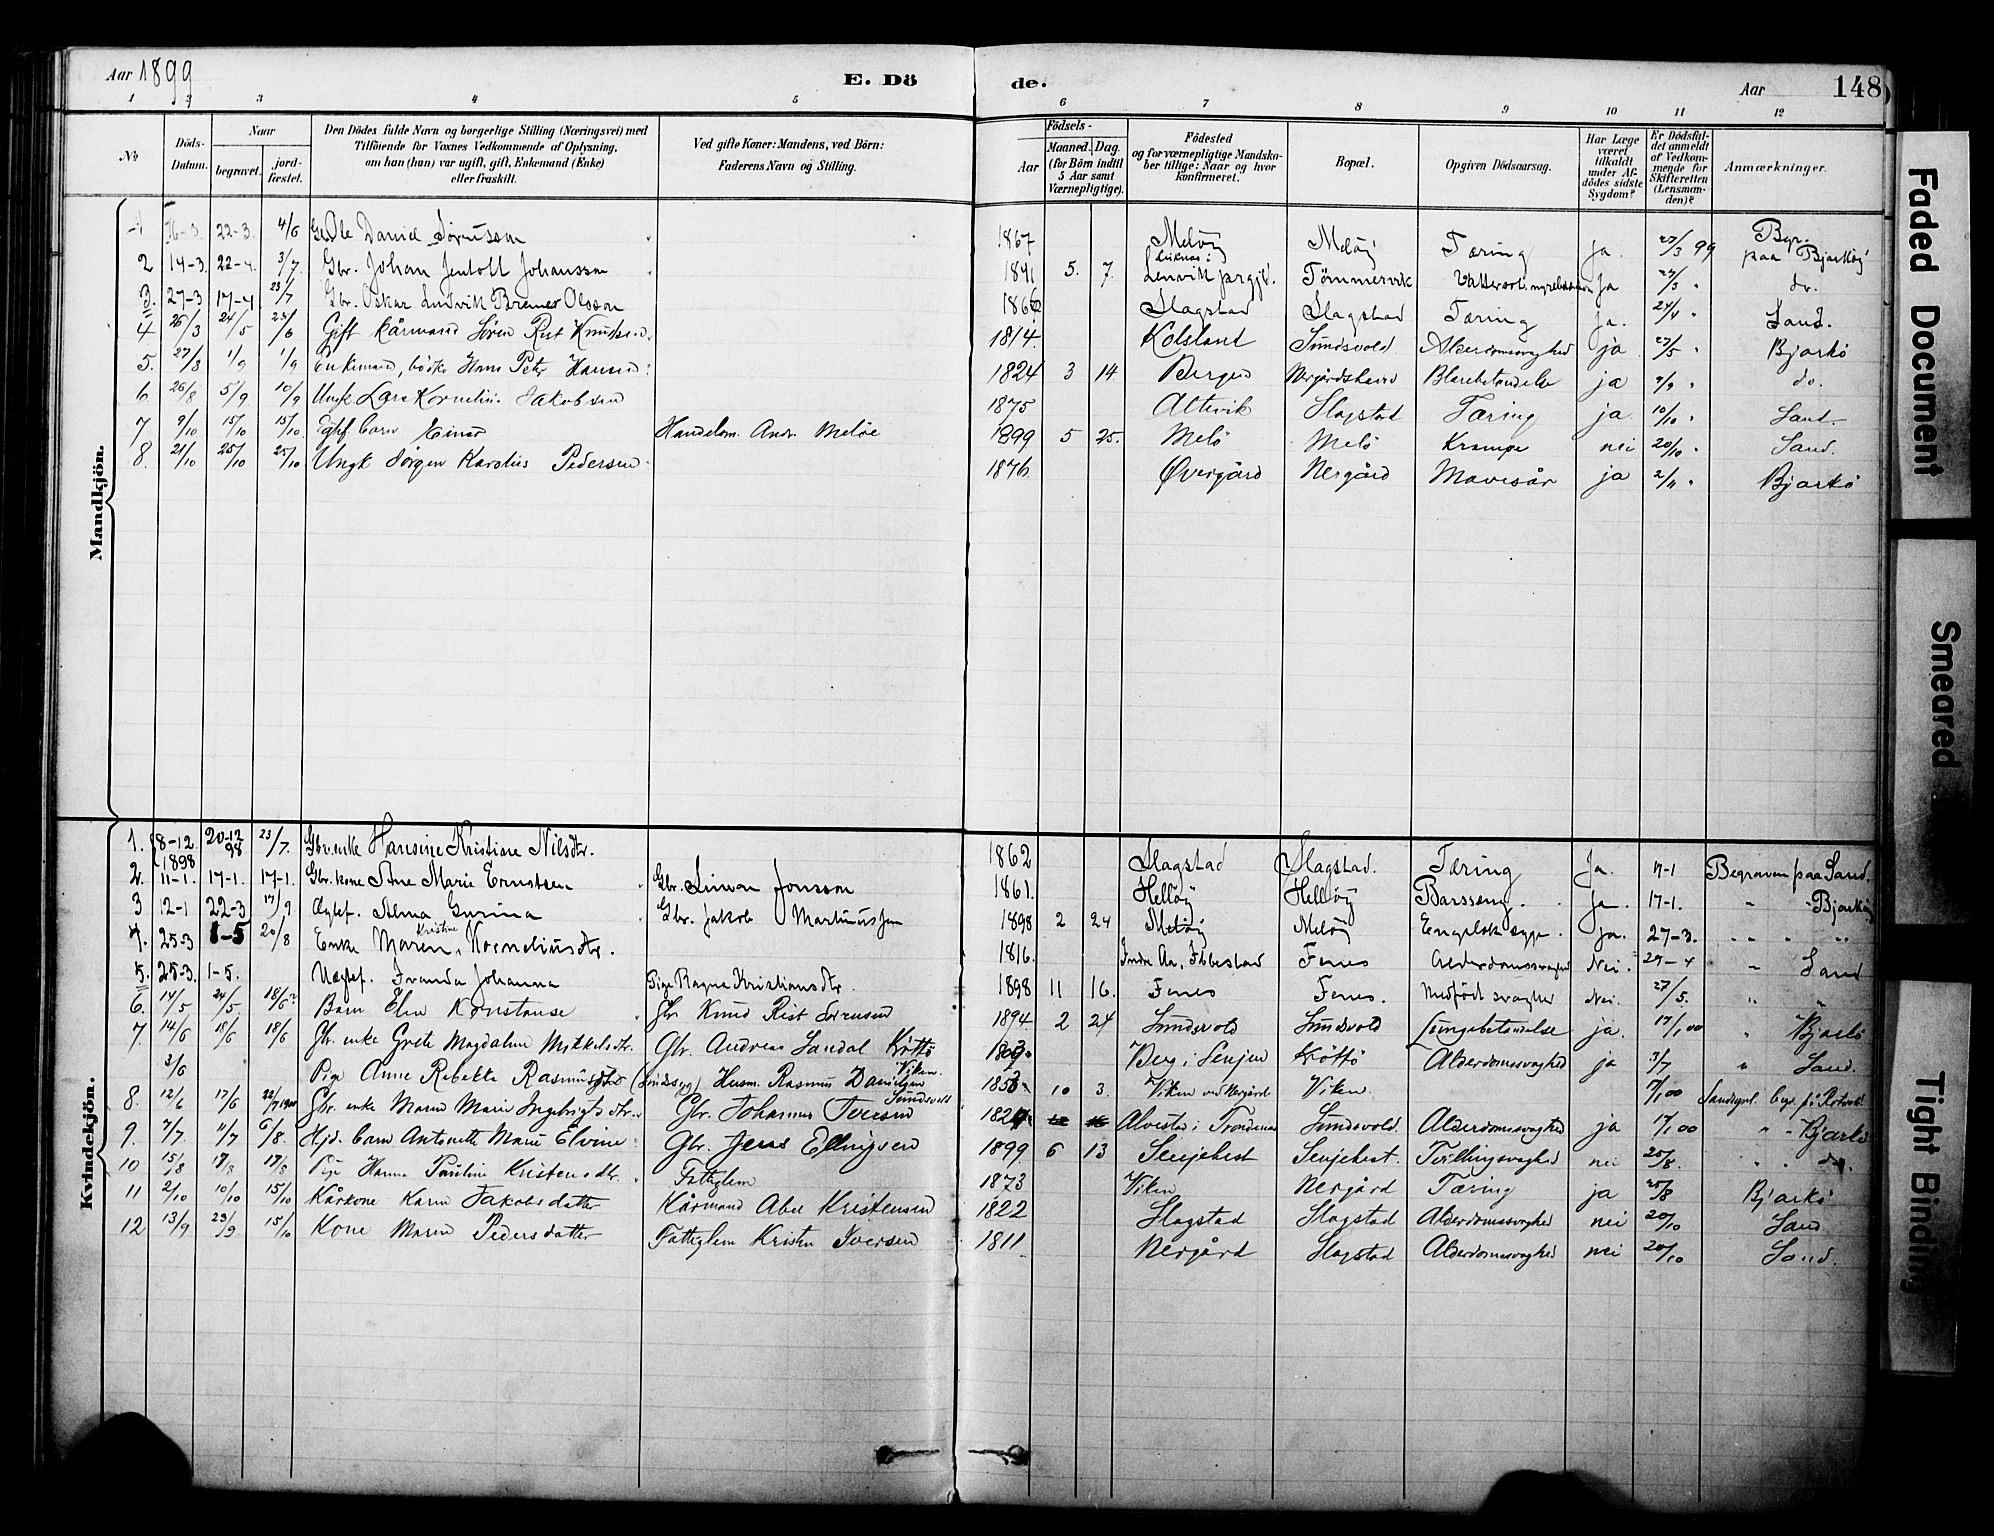 Aar 1899 E. Dö de. Aar 148
1 2 3 4 5 6 7 8 9 10 11 12
№ Döds-Datum. Naar begravet. jordfæstet. Den Dödes fulde Navn og borgerlige Stilling (Næringsvei) med Tilföiende for Voxnes Vedkommende af Oplysning, om han (hun) var ugift, gift, Enkemand (Enke) eller fraskilt. Ved gifte Koner: Mandens, ved Börn: Faderens Navn og Stilling. Födsels- Aar Maaned. Dag. (for Börn indtil 5 Aar samt Værnepligtige). Födested og for værnepligtige Mandskaber tillige: Naar og hvor konfirmeret. Bopæl. Opgiven Dödsaarsag. Har Læge været tilkaldt under Afdödes sidste Sygdom? Er Dödsfaldet anmeldt af Vedkommende for Skifteretten (Lensmanden)? Anmærkninger.
Mandkjön.
1 16-3. 22-3. 4/6 Ole Daniel Sörensson 1867 Melöy Melöy Tæring ja. 27/3 99 Begr. paa Bjarköy
2 14-3. 22-4. 3/7 Gbr. Johan Jentoft Johansson 1841 5. 7. Lenvik prgjd. Tömmervik Ja 27/3 " do.
3. 27-3 17-4 23/7 Gbr. Oskar Ludvik Bremer Olsson 1866 Slagstad Slagstad Tæring ja. 24/4 " Sand.
4 26/3 24/5 23/6 Gift kårmand Sören Rist Knudsen. 1814. Kolsland Sundsvold Alderdomssvaghed ja 27/5 " Bjarkö
5. 27/8 1/9 1/9 Enkemand, bödker Hans Peter Hansen. 1824 3 14. Bergen Nergårdshavn Blærebetændelse ja 9/9 " do.
6 26/8 5/9 10/9 Ungk Lars Kornelius Jakobsen 1875 Altevik Slagstad Tæring ja 10/10 " Sand.
7 9/10 15/10 15/10 Egtef barn Einar Handelsm. Andr. Melöe 1899 5 25. Melö Melö Krampe nei 20/10 " Sand.
8. 21/10 25/10 25/10 Ungk Jörgen Karolius Pedersen 1876. Øvergård Nergård Mavesår ja 2/11 " Bjarkö
Kvindekjön.
1. 18-12. 1898 20-12 98 23/7. Gbr. enke Hansine Kristiane Nilsdtr. 1862 Slagstad Slagstad. Tæring Ja. 17-1 Begraven paa Sand.
2. 11-1. 17-1. 17-1. Gbr. kone Ane Marie Ernstsen Gbr. Simon Jonsson 1861. Hellöy Hellöy Barsseng. Ja. 17-1. " " Bjarköy
3 12-1 22-3 17/9 Ægtef. Alma Gurina Gbr. Jakob Martinussen 1898 2 24 Melöy Melöy Engelsk syge. ja. 27-3. " " " "
4. 25-3 1-5 20/8 Enke Maren Kristine Korneliusdtr. 1816. Indre Aa, Ibbestad Fenes Alderdomssvaghed Nei. 29-4 " Sand
5. 25-3. 1-5. Uægtef. Johanna Pige Ragna Kristiansdtr. 1898 11 16. Fenes Fenes. Medfödt svaghed Nei. 27/5. " "
6. 14/5 24/5. 18/6? Barn Elen Konstanse Gbr. Knud Rist Sörensen 1894 2 24 Sundsvold Sundsvold Lungebetændelse ja. 17/1 00 " Bjarkö
7. 14/6 18/6 18/6 Gbr. enke Grete Magdalene Mikkelsdtr. Gbr. Andreas Sandal Kröttö Berg i Senjen Kröttö Alderdomssvaghed ja 3/7 " Sand.
3/6 Pige Anne Rebekka Rasmusdtr (Sindssyg) Husm. Rasmus Danielsen Viken. 1853. 10 3. Viken ved Nergård Viken. 7/1 00
8. 12/6 17/6 22/7 1900 Gbr. enke Maren Marie Ingebrigtsdtr. Gbr. Johannes Iversen Sundsvold 1824 Alvestad i Trondenes Sundsvold. Alderdomssvaghed ja 17/1 00 " " Bjarkö
9. 7/7 11/7 6/8. Hjd. barn Antonette Marie Elvine Gbr. Jens Ellingsen 1899. 6 13 Senjehest Senjehest. Tvillingsvaghed nei 25/8. " " do.
10 15/8 17/8 17/8 Pige Hanna Pauline Kristensdtr. Fattiglem 1873 Viken Nergård Tæring ja 25/8 Bjarkö
11 2/10 10/10 15/10 Kårkone Karen Jakobsdatter Kårmand Abel Kristensen 1822 Slagstad Slagstad Alderdomssvaghed nei 20/10 Sand
12 13/9 23/9 15/10 Kone Maren Pedersdatter Fattiglem Kristen Iversen 1811 Nergård Slagstad Alderdomssvaghed nei 20/10 Sand.
Faded Document
Smeared
Tight Binding